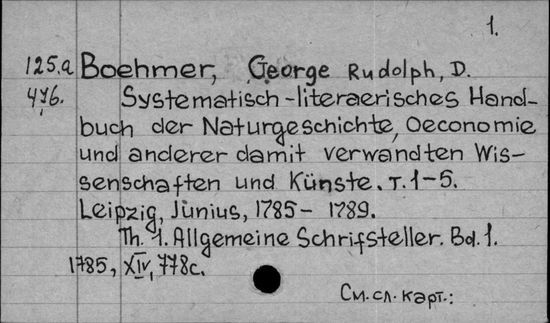 1.
125.a Boehmer, George Rudolph, D.
476. Systematisch-literaerisches Hand-
buch der Naturgeschichte, Oeconomie
und anderer damit verwandten Wis-
senschaften und Künste. T. 1-5.
Leipzig, Junius, 1785- 1789.
Th. 1. Allgemeine Schrifsteller. Bd. 1.
1785, XIV, 778c.
См. сл. карт.: